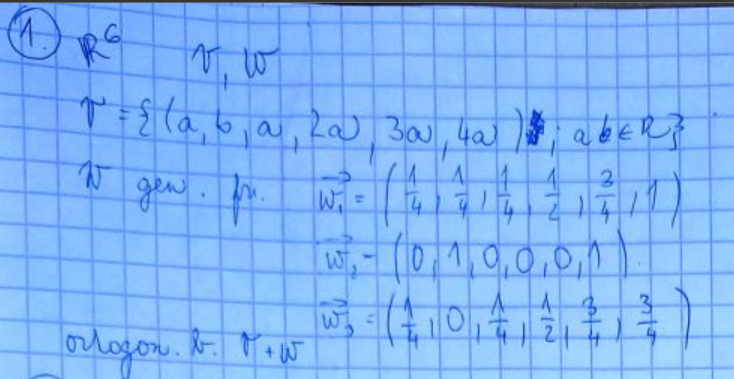 1. R^6 V, W
V = {(a, b, a, 2a, 3a, 4a) ; a b ∈ R}
W gen. pr. \vec{w_1} = (1/4, 1/4, 1/4, 1/2, 3/4, 1)
\vec{w_2} = (0, 1, 0, 0, 0, 1)
\vec{w_3} = (1/4, 0, 1/4, 1/2, 3/4, 3/4)
ortogon. b. V+W